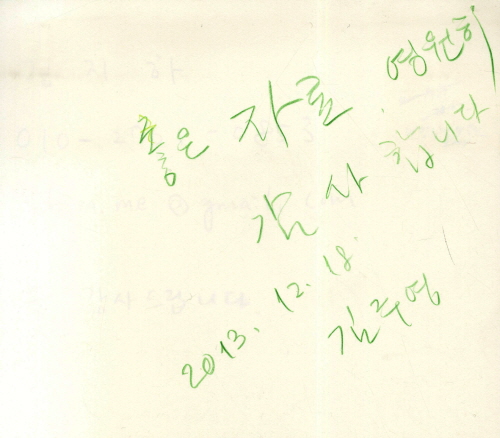 좋은 자료 영원히
감사합니다
2013. 12. 18.
김주영